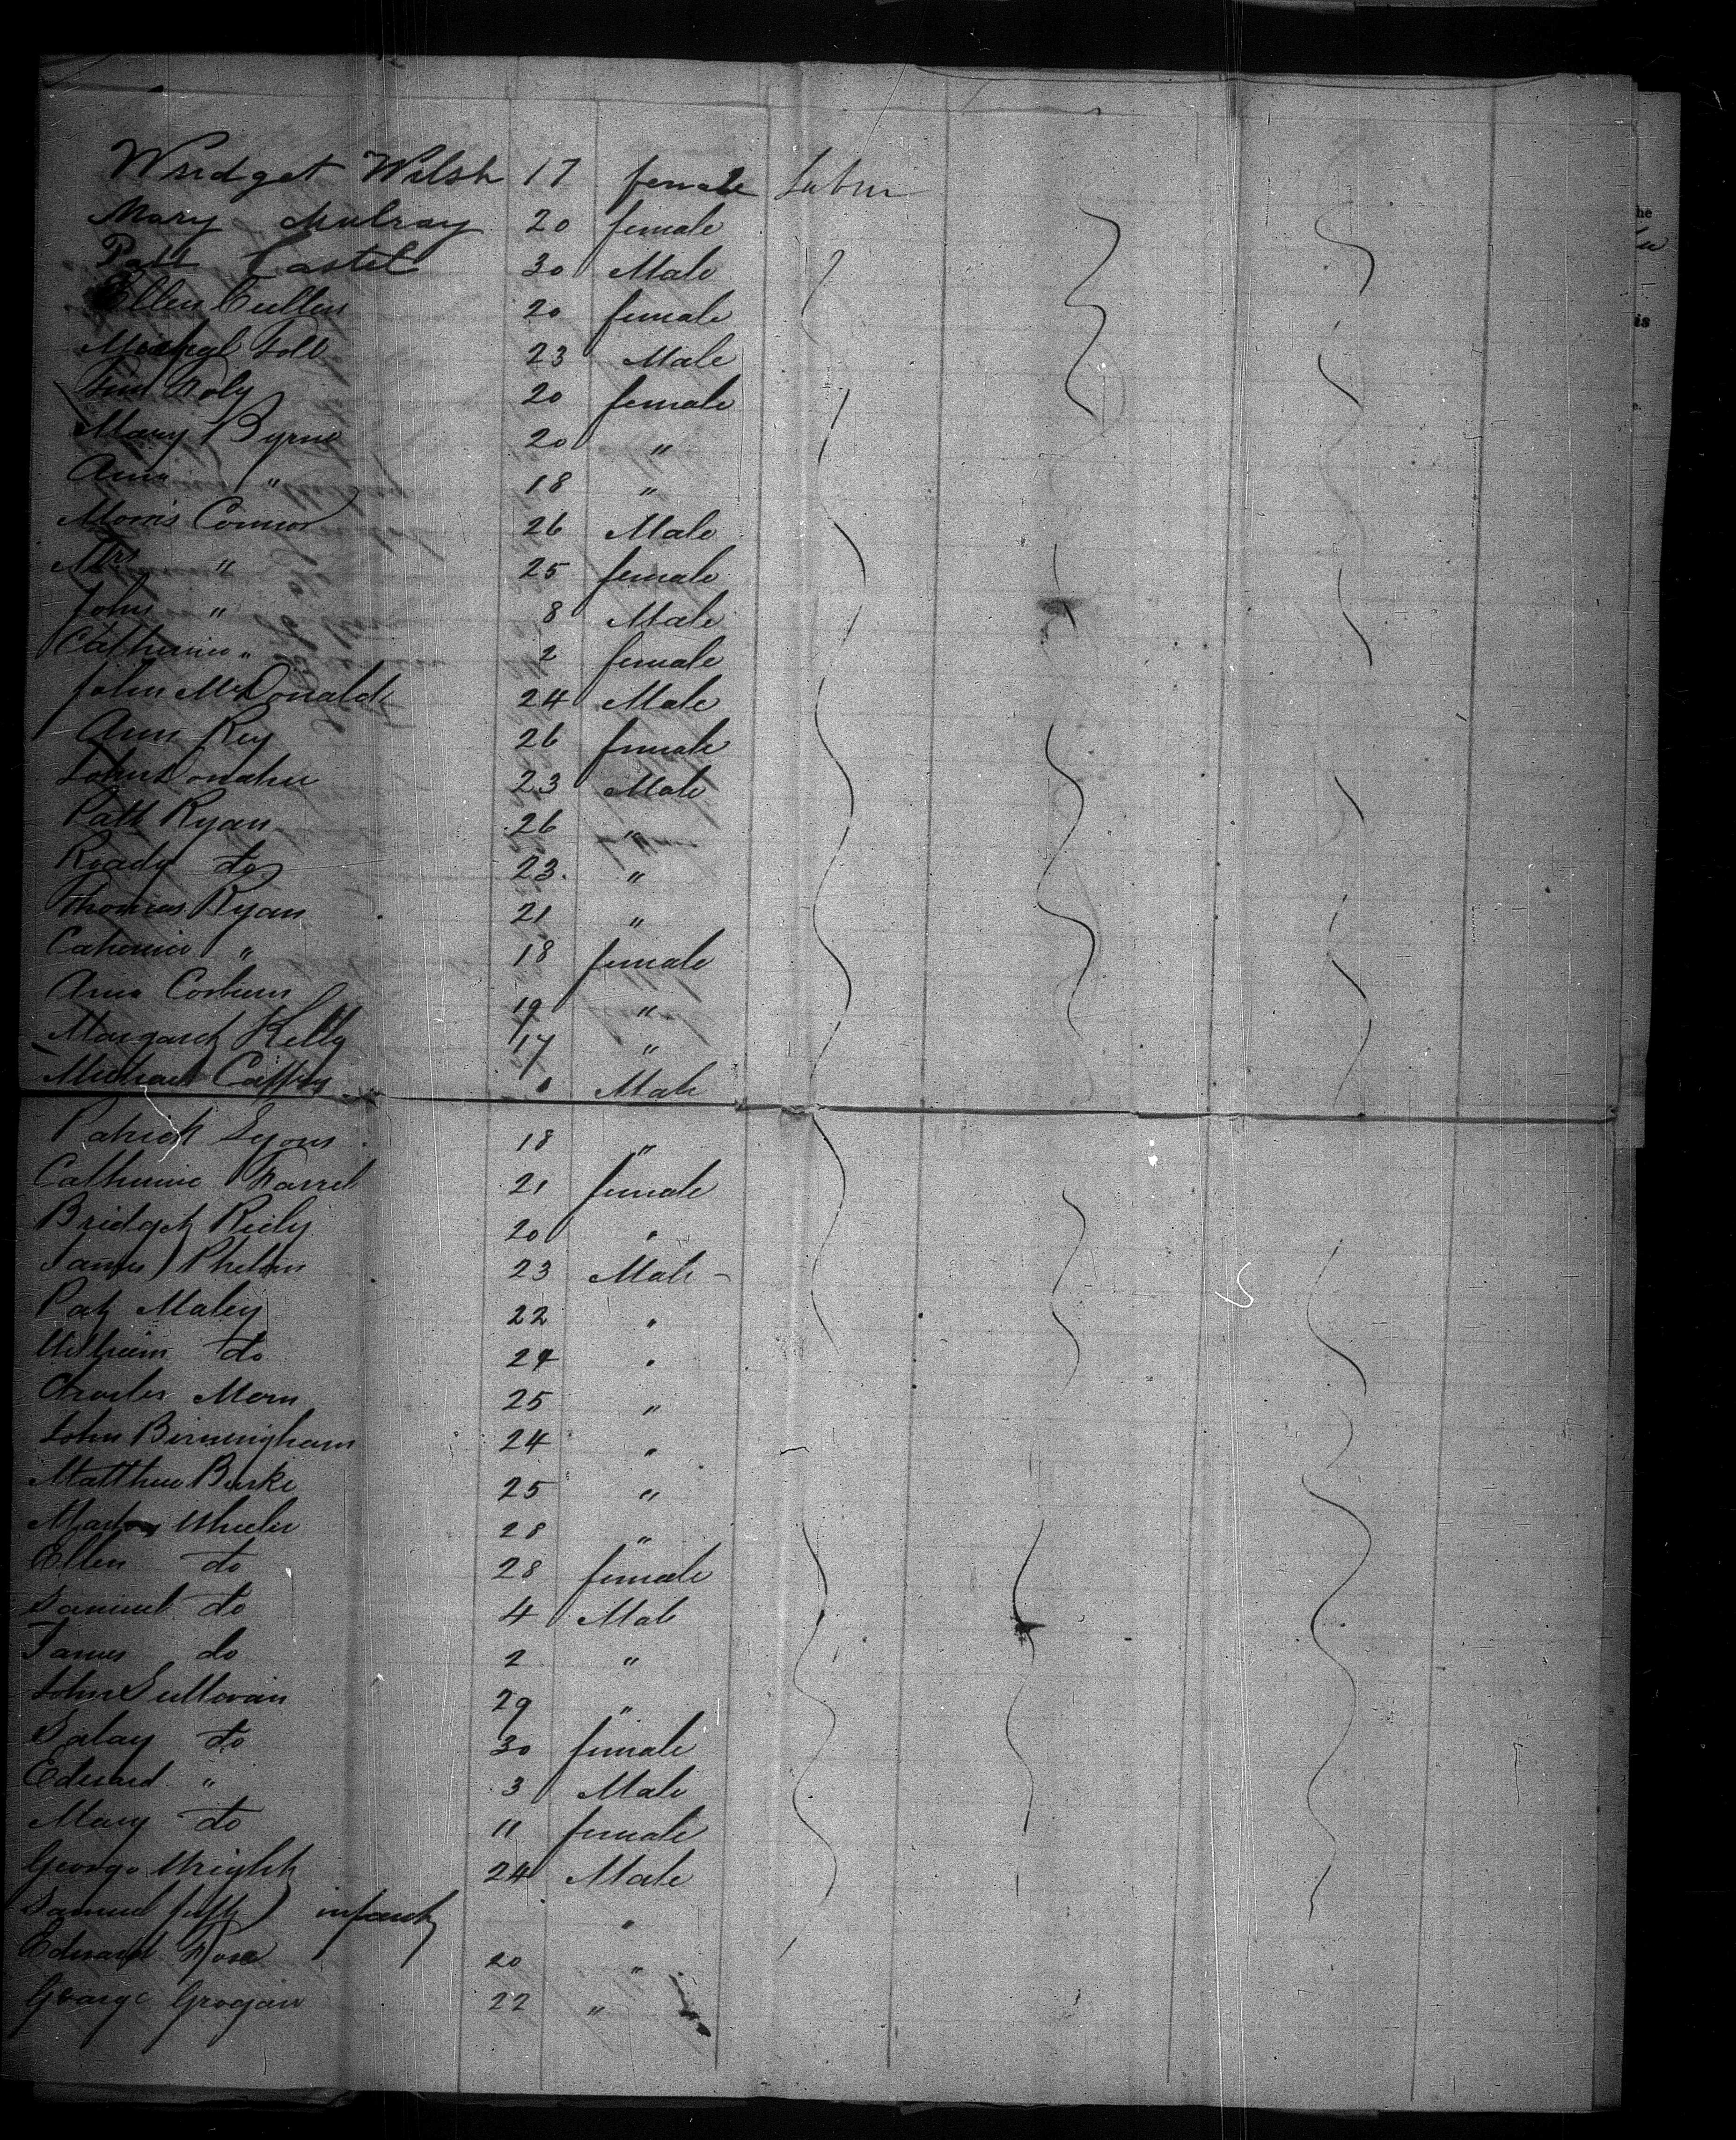 Wridget Welsh 17 female Labor
Mary Mulray 20 female
Patt Castel 30 Male
Ellen Cullen 20 female
Michael 23 Male
Ann Foly 20 female
Mary Byrne 20 "
Ann " 18 "
Morris Connor 26 Male
Mrs " 25 female
John " 8 Male
Catherine " 2 female
John McDonald 24 Male
Ann Rey 26 female
John Donahue 23 Male
Patt Ryan 26 "
Roady do 23. "
Thomas Ryan 21 "
Catherine " 18 female
Ann 19 "
Margaret Kelly 17 "
Michael Caffrey Male
Patrick Lyons 18 "
Catherine Farrel 21 female
Bridget Reily 20 "
James Phelan 23 Male
Pat Maley 22 "
William do 24 "
Charles Morn 25 "
John Birmingham 24 "
Matthew Burke 25 "
Wheeler 28 "
Ellen do 28 female
Samuel do 4 Male
James do 2 "
John Sullovan 29 "
Salay do 30 female
Edward " 3 Male
Mary do 11 female
George Wright 24 Male
Samuel infant "
Edward Rose 20 "
George Grogan 22 "
he
is
e.